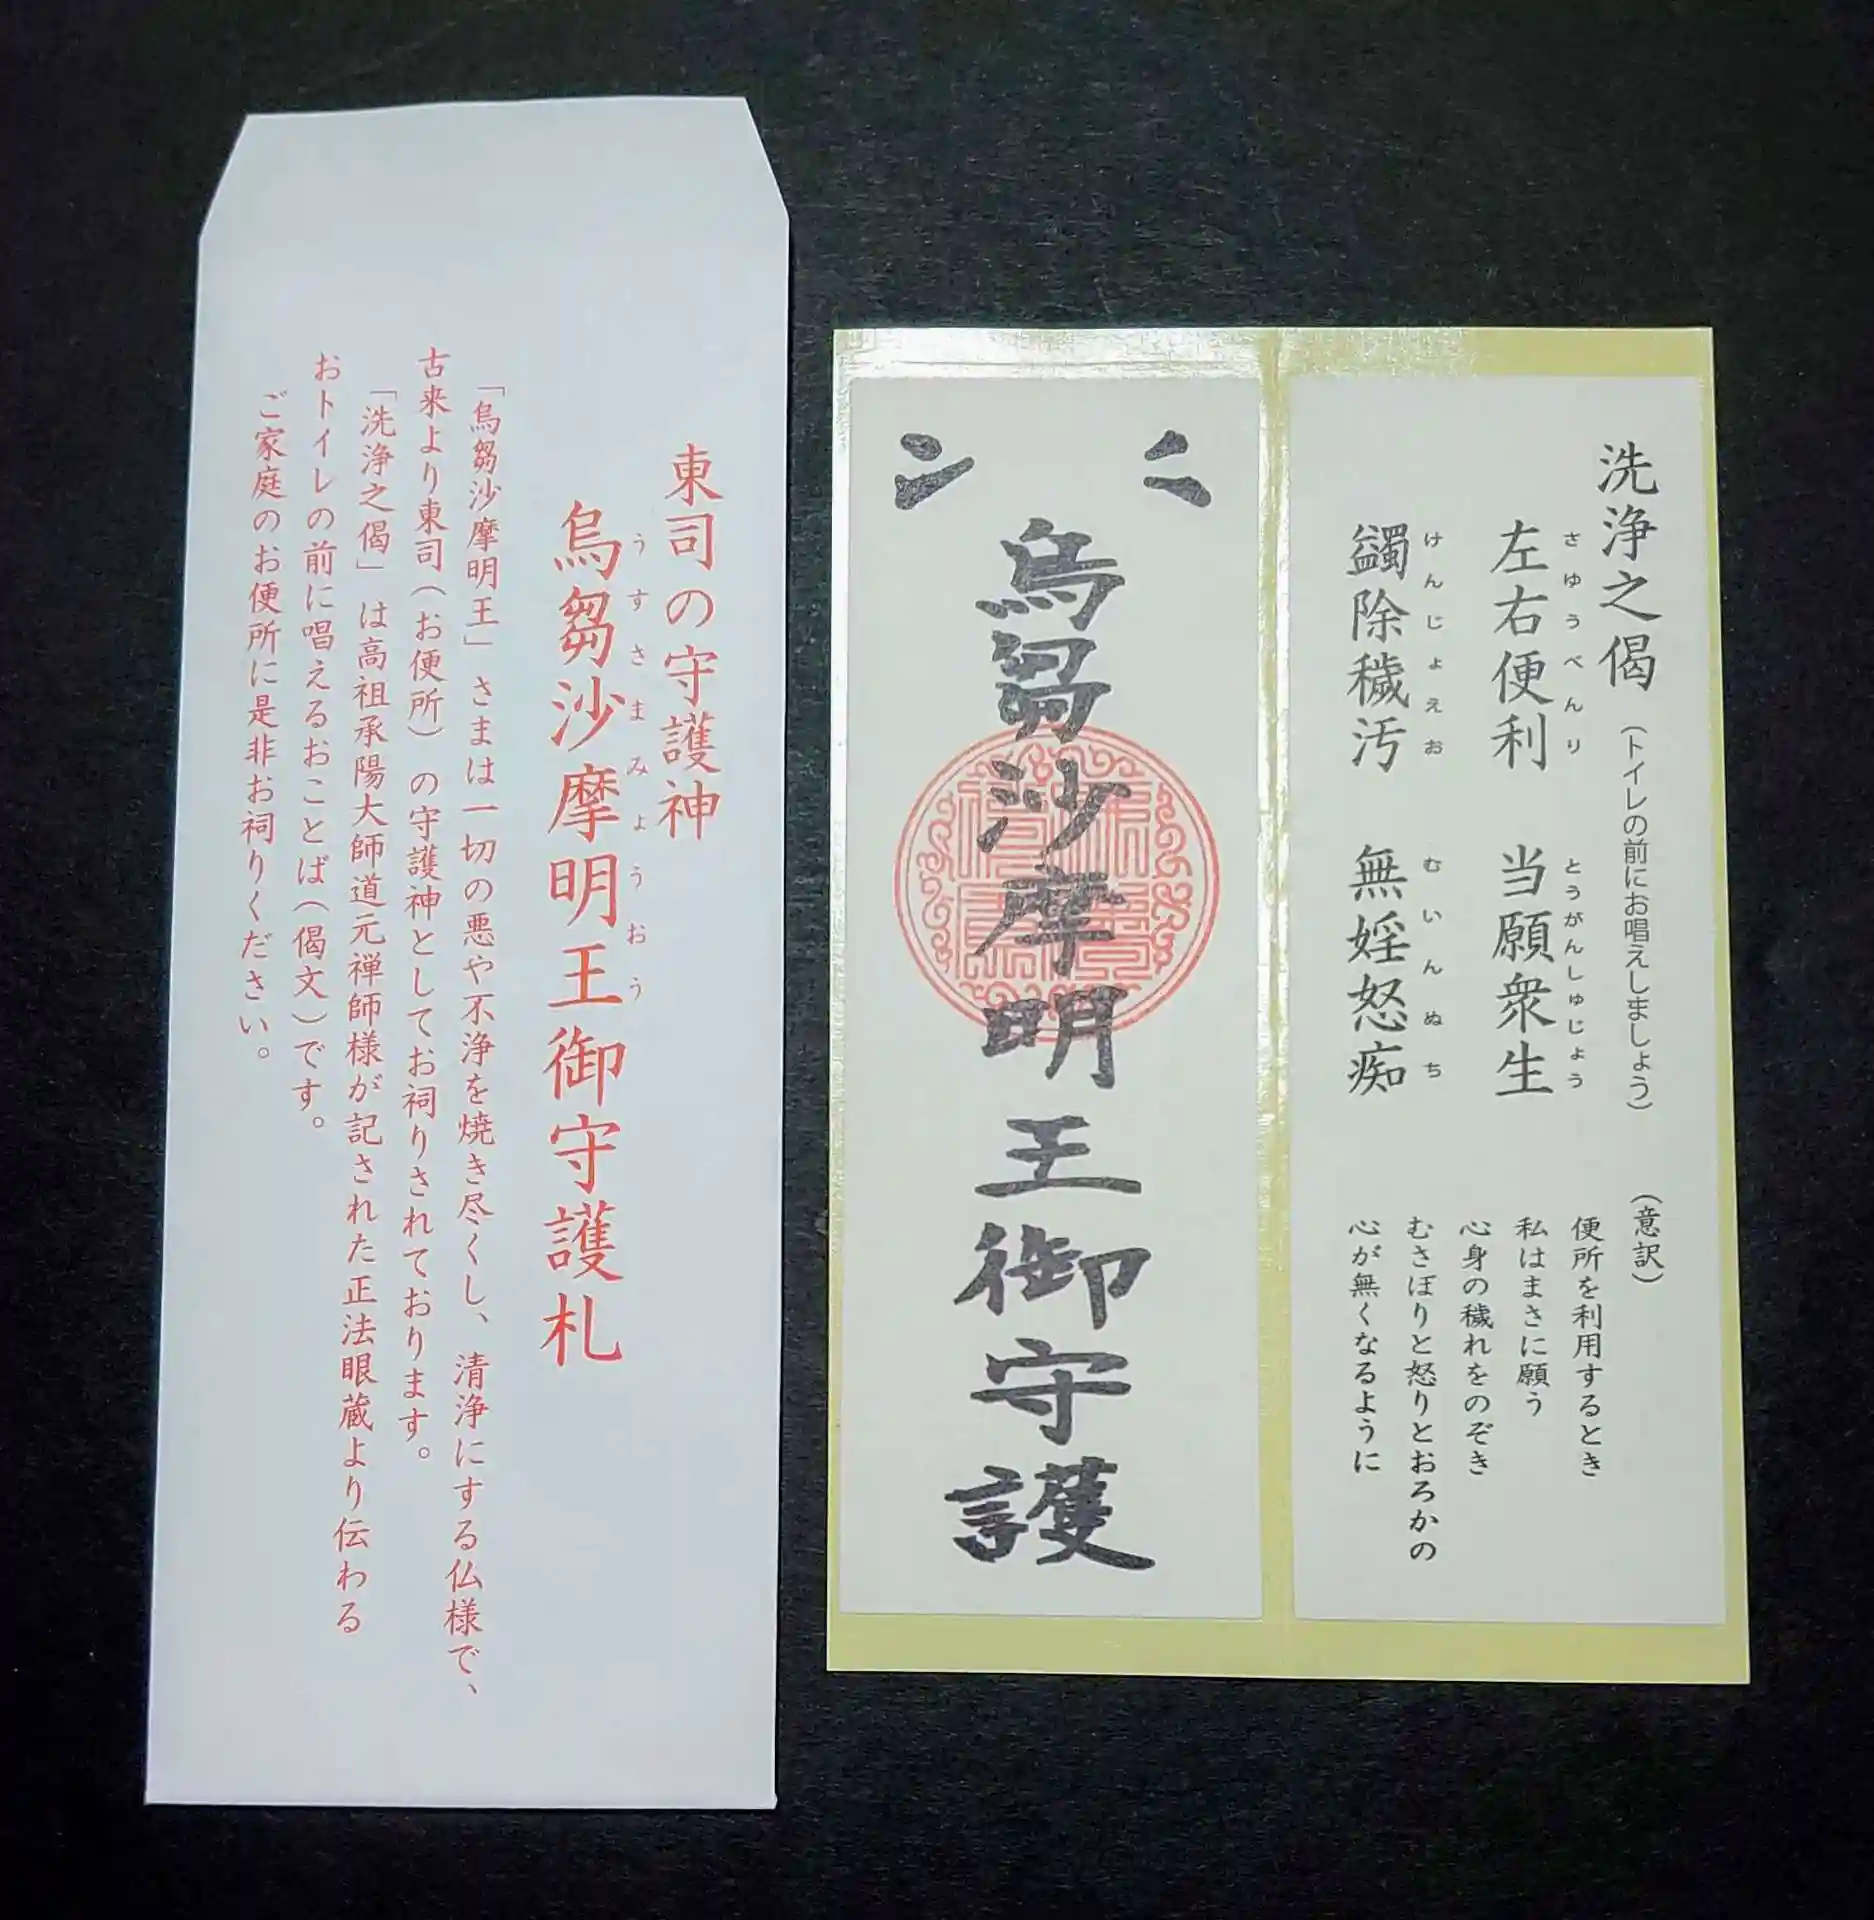 東司の守護神
烏芻沙摩明王御守護札
うすさまみょうおう
「烏芻沙摩明王」さまは一切の悪や不浄を焼き尽くし、清浄にする仏様で、
古来より東司(お便所)の守護神としてお祠りされております。
「洗浄之偈」は高祖承陽大師道元禅師様が記された正法眼蔵より伝わる
おトイレの前に唱えるおことば(偈文)です。
ご家庭のお便所に是非お祠りください。
烏芻沙摩明王御守護
洗浄之偈(トイレの前にお唱えしましょう)
左右便利 当願衆生
さゆうべんり とうがんしゅじょう
蠲除穢汚 無婬怒痴
けんじょえお むいんぬち
(意訳)
便所を利用するとき
私はまさに願う
心身の穢れをのぞき
むさぼりと怒りとおろかの
心が無くなるように